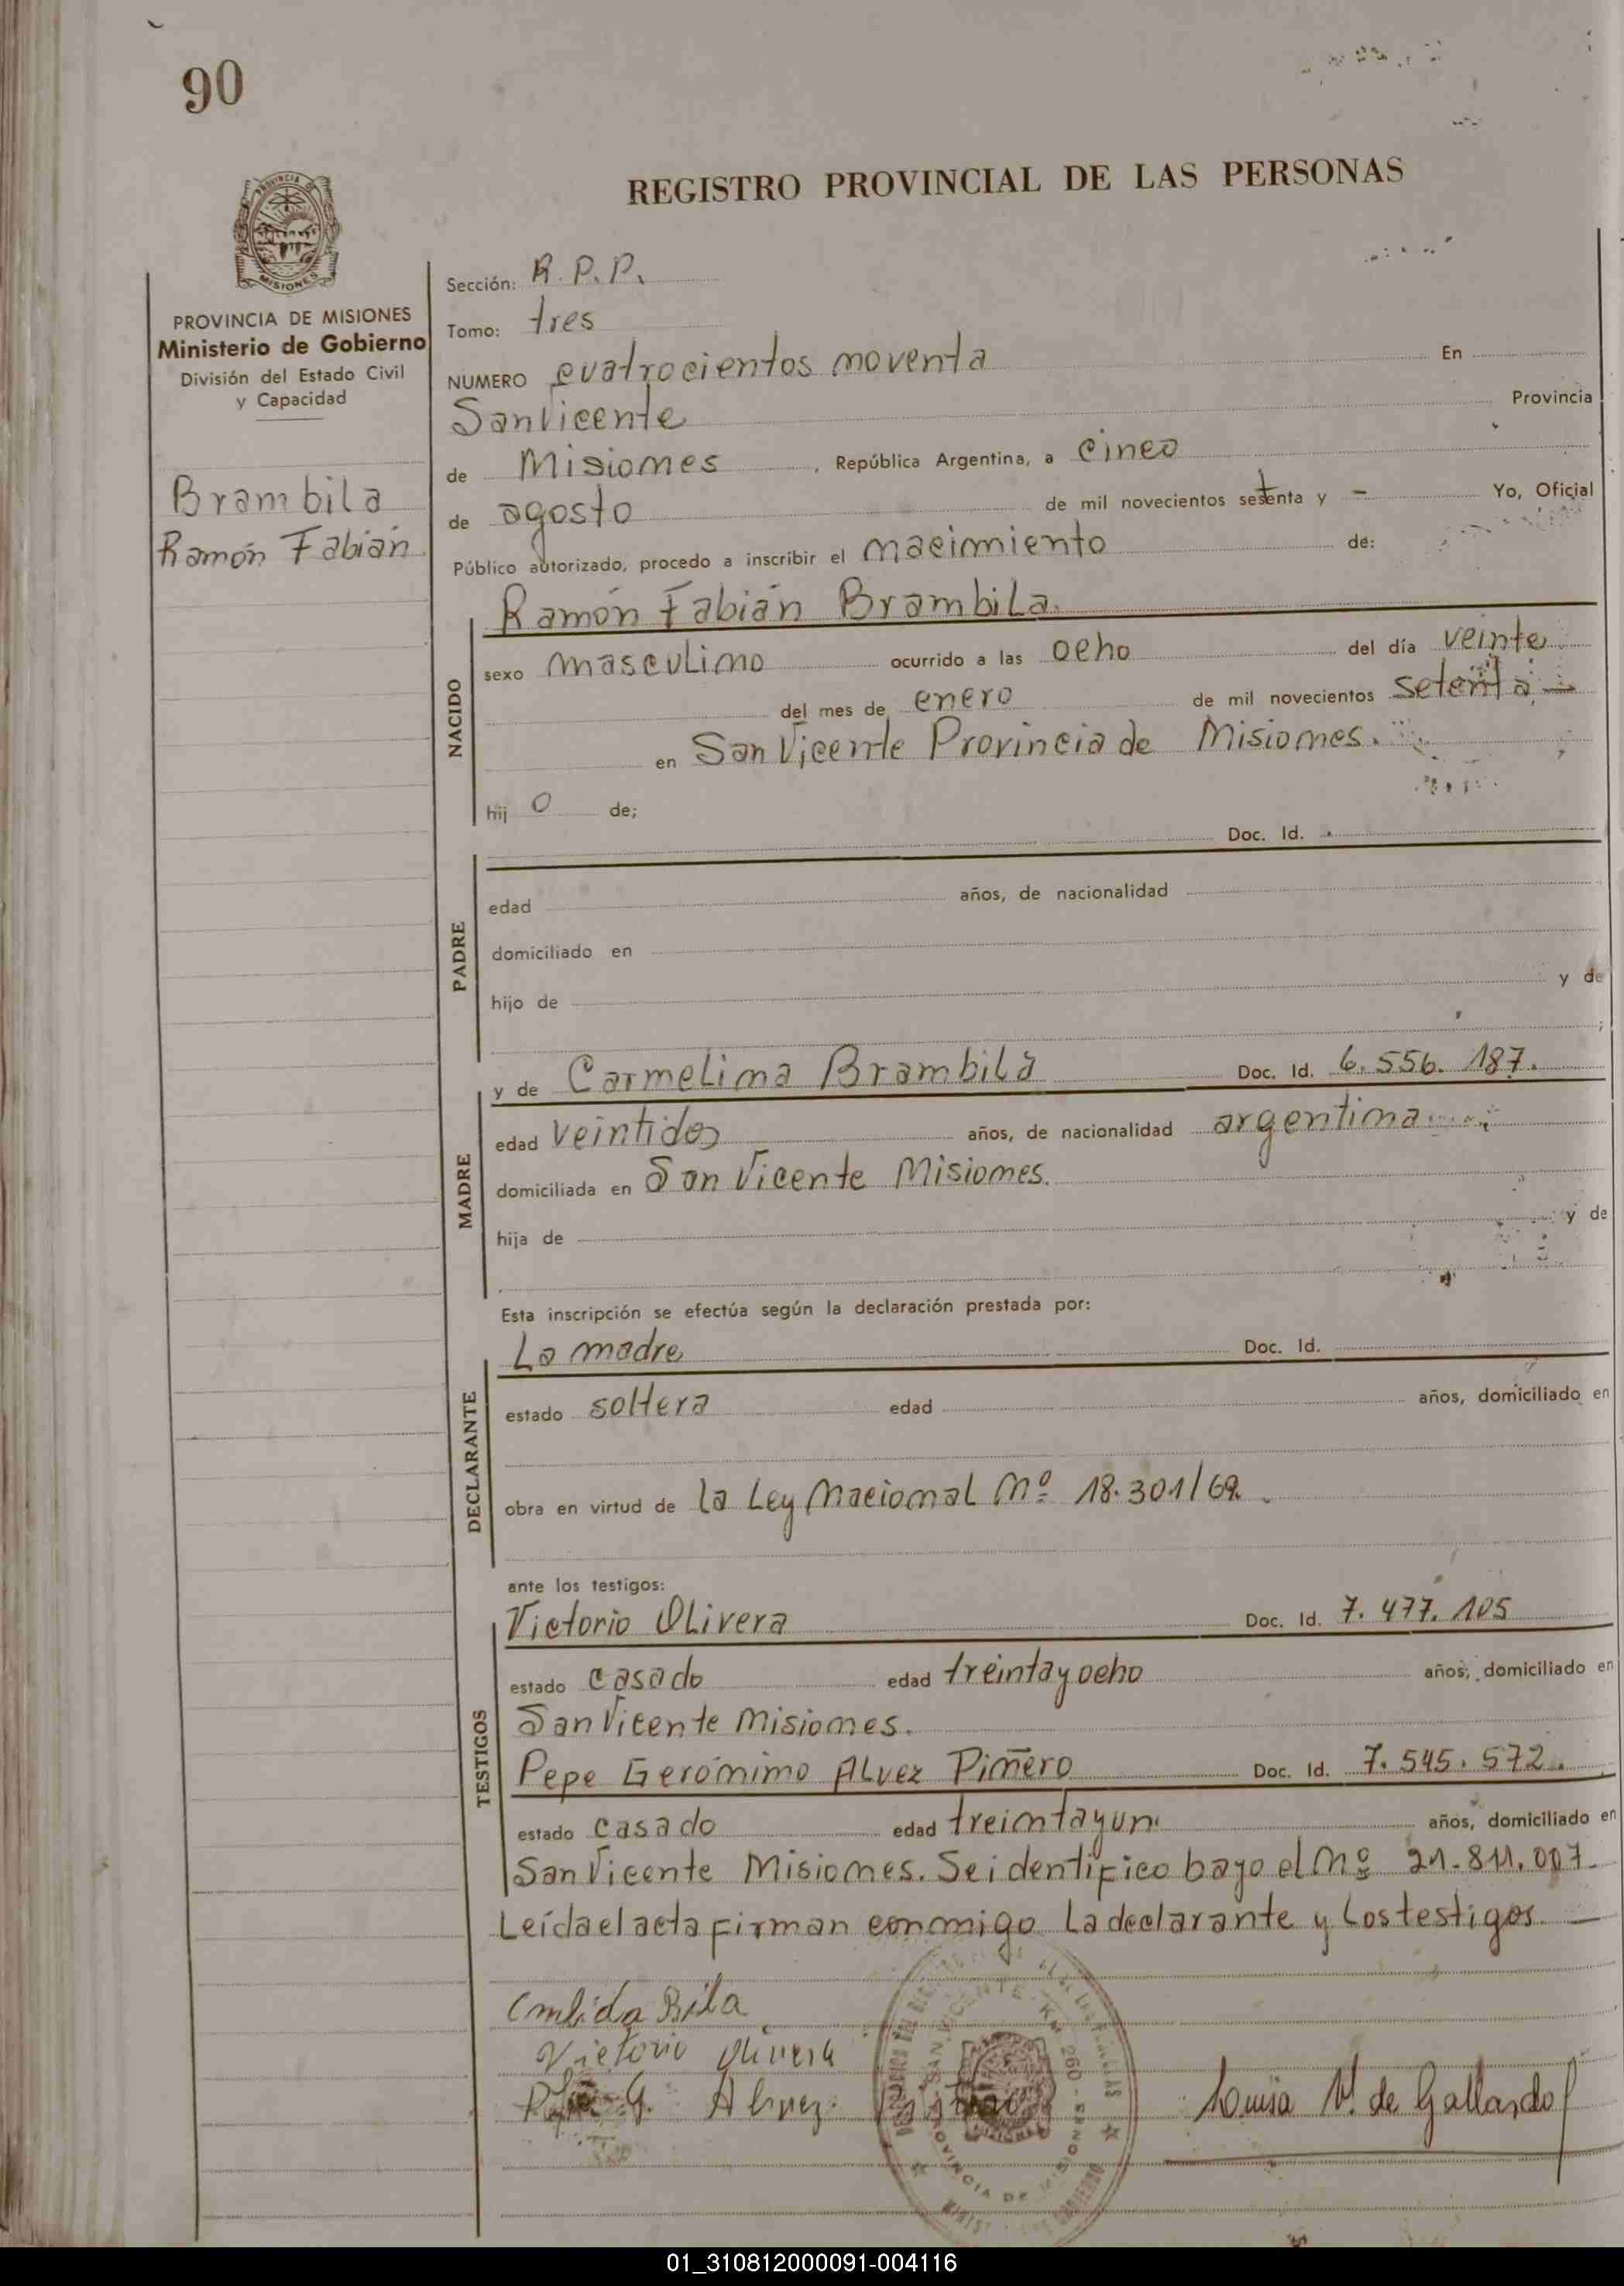 90
REGISTRO PROVINCIAL DE LAS PERSONAS
MISIONES
PROVINCIA DE MISIONES
Ministerio de Gobierno
División del Estado Civil
y Capacidad
Brambila
Ramón Fabián
Sección: R. P. P.
Tomo: tres
NUMERO cuatrocientos noventa En
San Vicente Provincia
de Misiones, República Argentina, a cinco
de agosto de mil novecientos setenta y - Yo, Oficial
Público autorizado, procedo a inscribir el nacimiento de:
Ramón Fabián Brambila.
NACIDO
sexo masculino ocurrido a las ocho del día veinte
del mes de enero de mil novecientos setenta -
en San Vicente Provincia de Misiones.
hij o de;
Doc. Id.
PADRE
edad años, de nacionalidad
domiciliado en
hijo de y de
;
y de Carmelina Brambila Doc. Id. 6.556.187.
MADRE
edad veintidos años, de nacionalidad argentina
domiciliada en San Vicente Misiones.
hija de y de
Esta inscripción se efectúa según la declaración prestada por:
La madre Doc. Id.
DECLARANTE
estado soltera edad años, domiciliado en
obra en virtud de la Ley Nacional Nº 18.301/69.
ante los testigos:
Victorio Olivera Doc. Id. 7.477.105
TESTIGOS
estado casado edad treinta y ocho años, domiciliado en
San Vicente Misiones.
Pepe Gerónimo Alvez Piñero Doc. Id. 7.545.572.
estado casado edad treinta y un años, domiciliado en
San Vicente Misiones. Se identifico bayo el Nº 21.811.007.
Leída el acta firman conmigo La declarante y Los testigos. —
Victorio Olivera
G. Alvez
Luisa V. de Gallardo
SAN VICENTE - KM 260 - MISIONES
PROVINCIA DE MISIONES
01_310812000091-004116